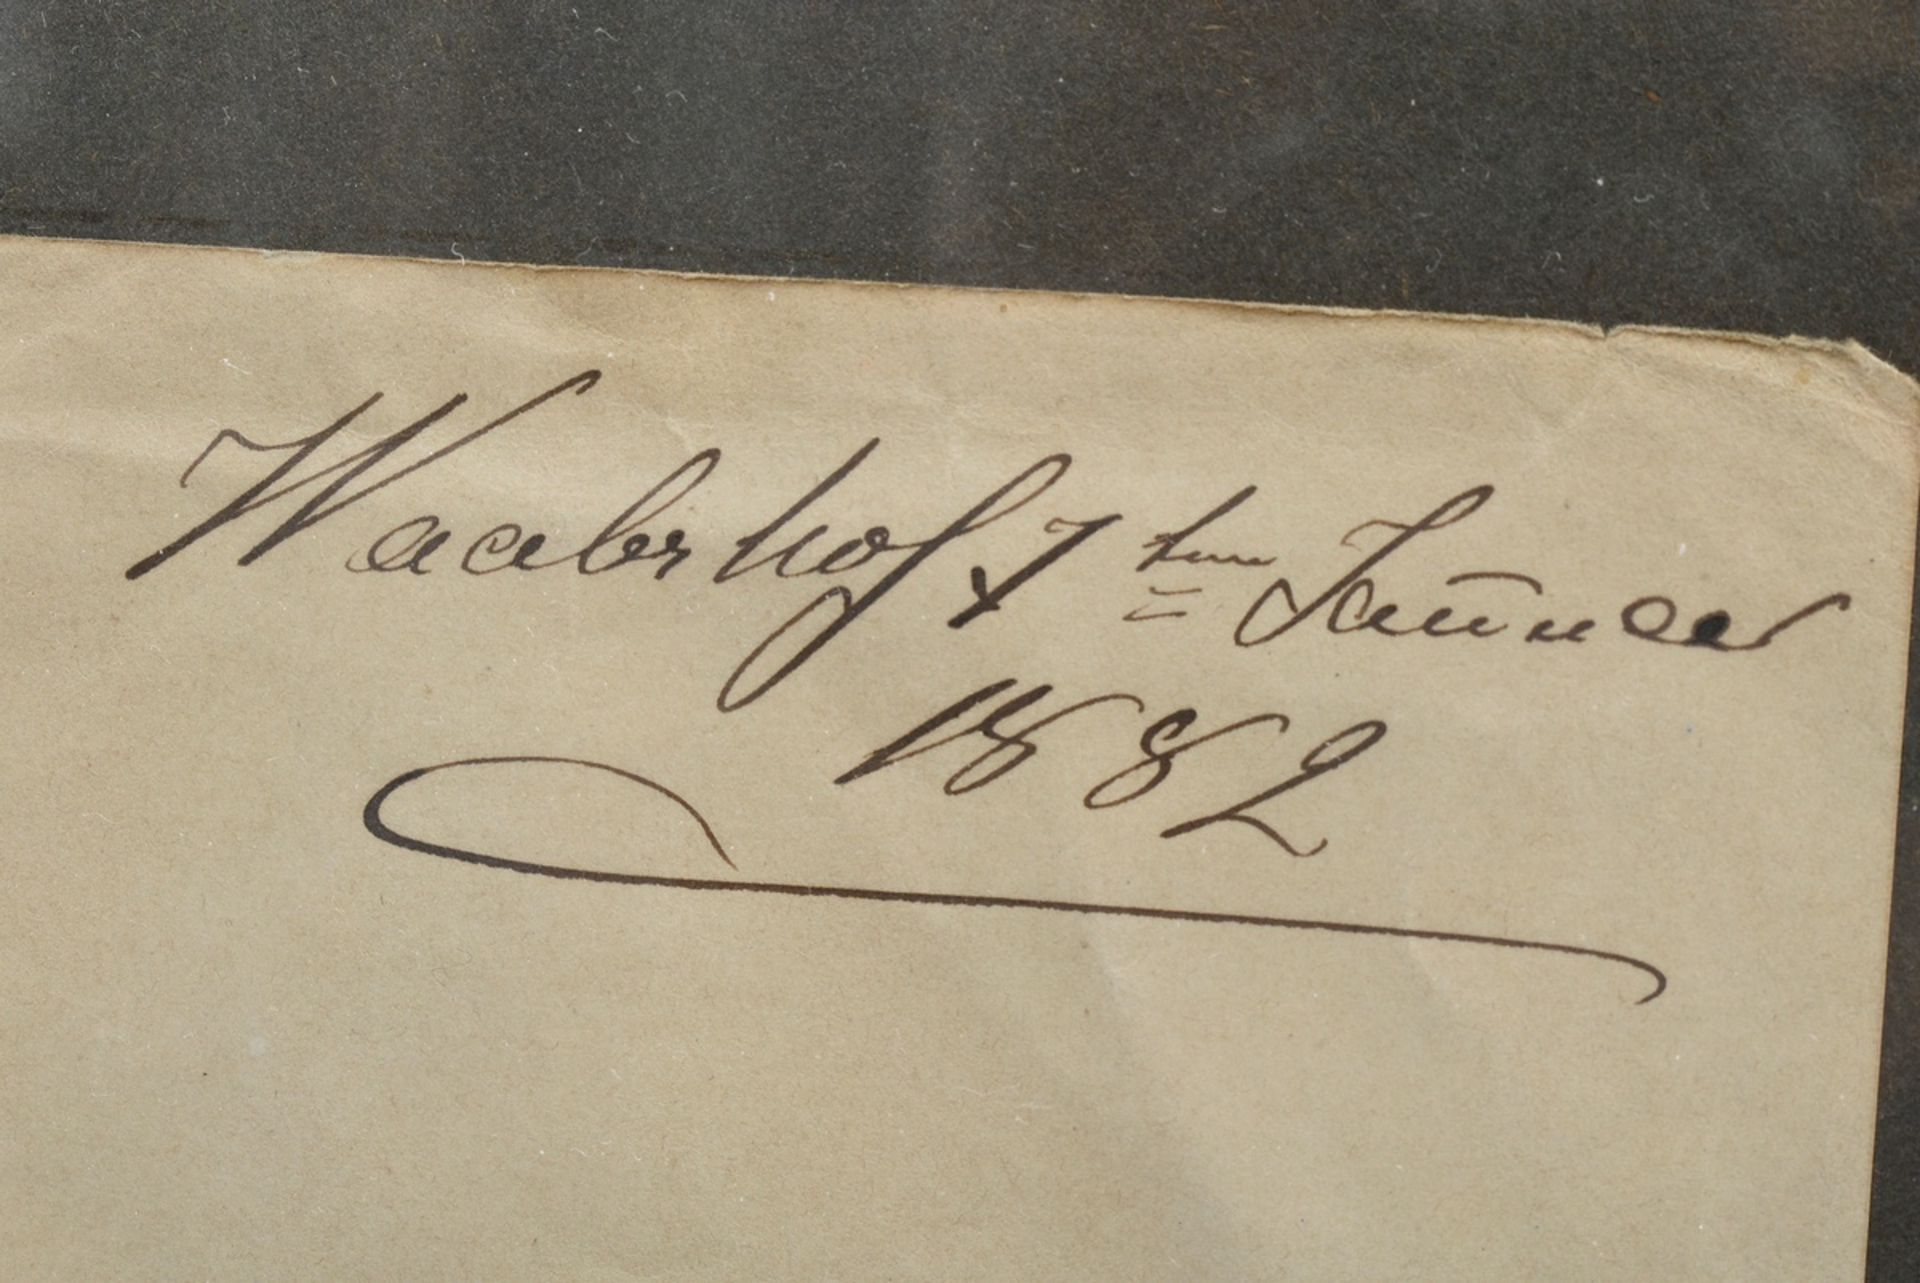 Waabshof, 7ten Januar
1882